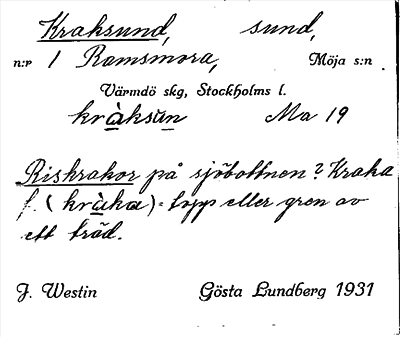 Kraksund, sund,
n:r 1 Ramsmora, Möja s:n
Värmdö skg, Stockholms l.
kràksun Ma 19
Riskrakor på sjöbottnen? Kraka
f. (kràka) = topp eller gren av
ett träd.
J. Westin Gösta Lundberg 1931